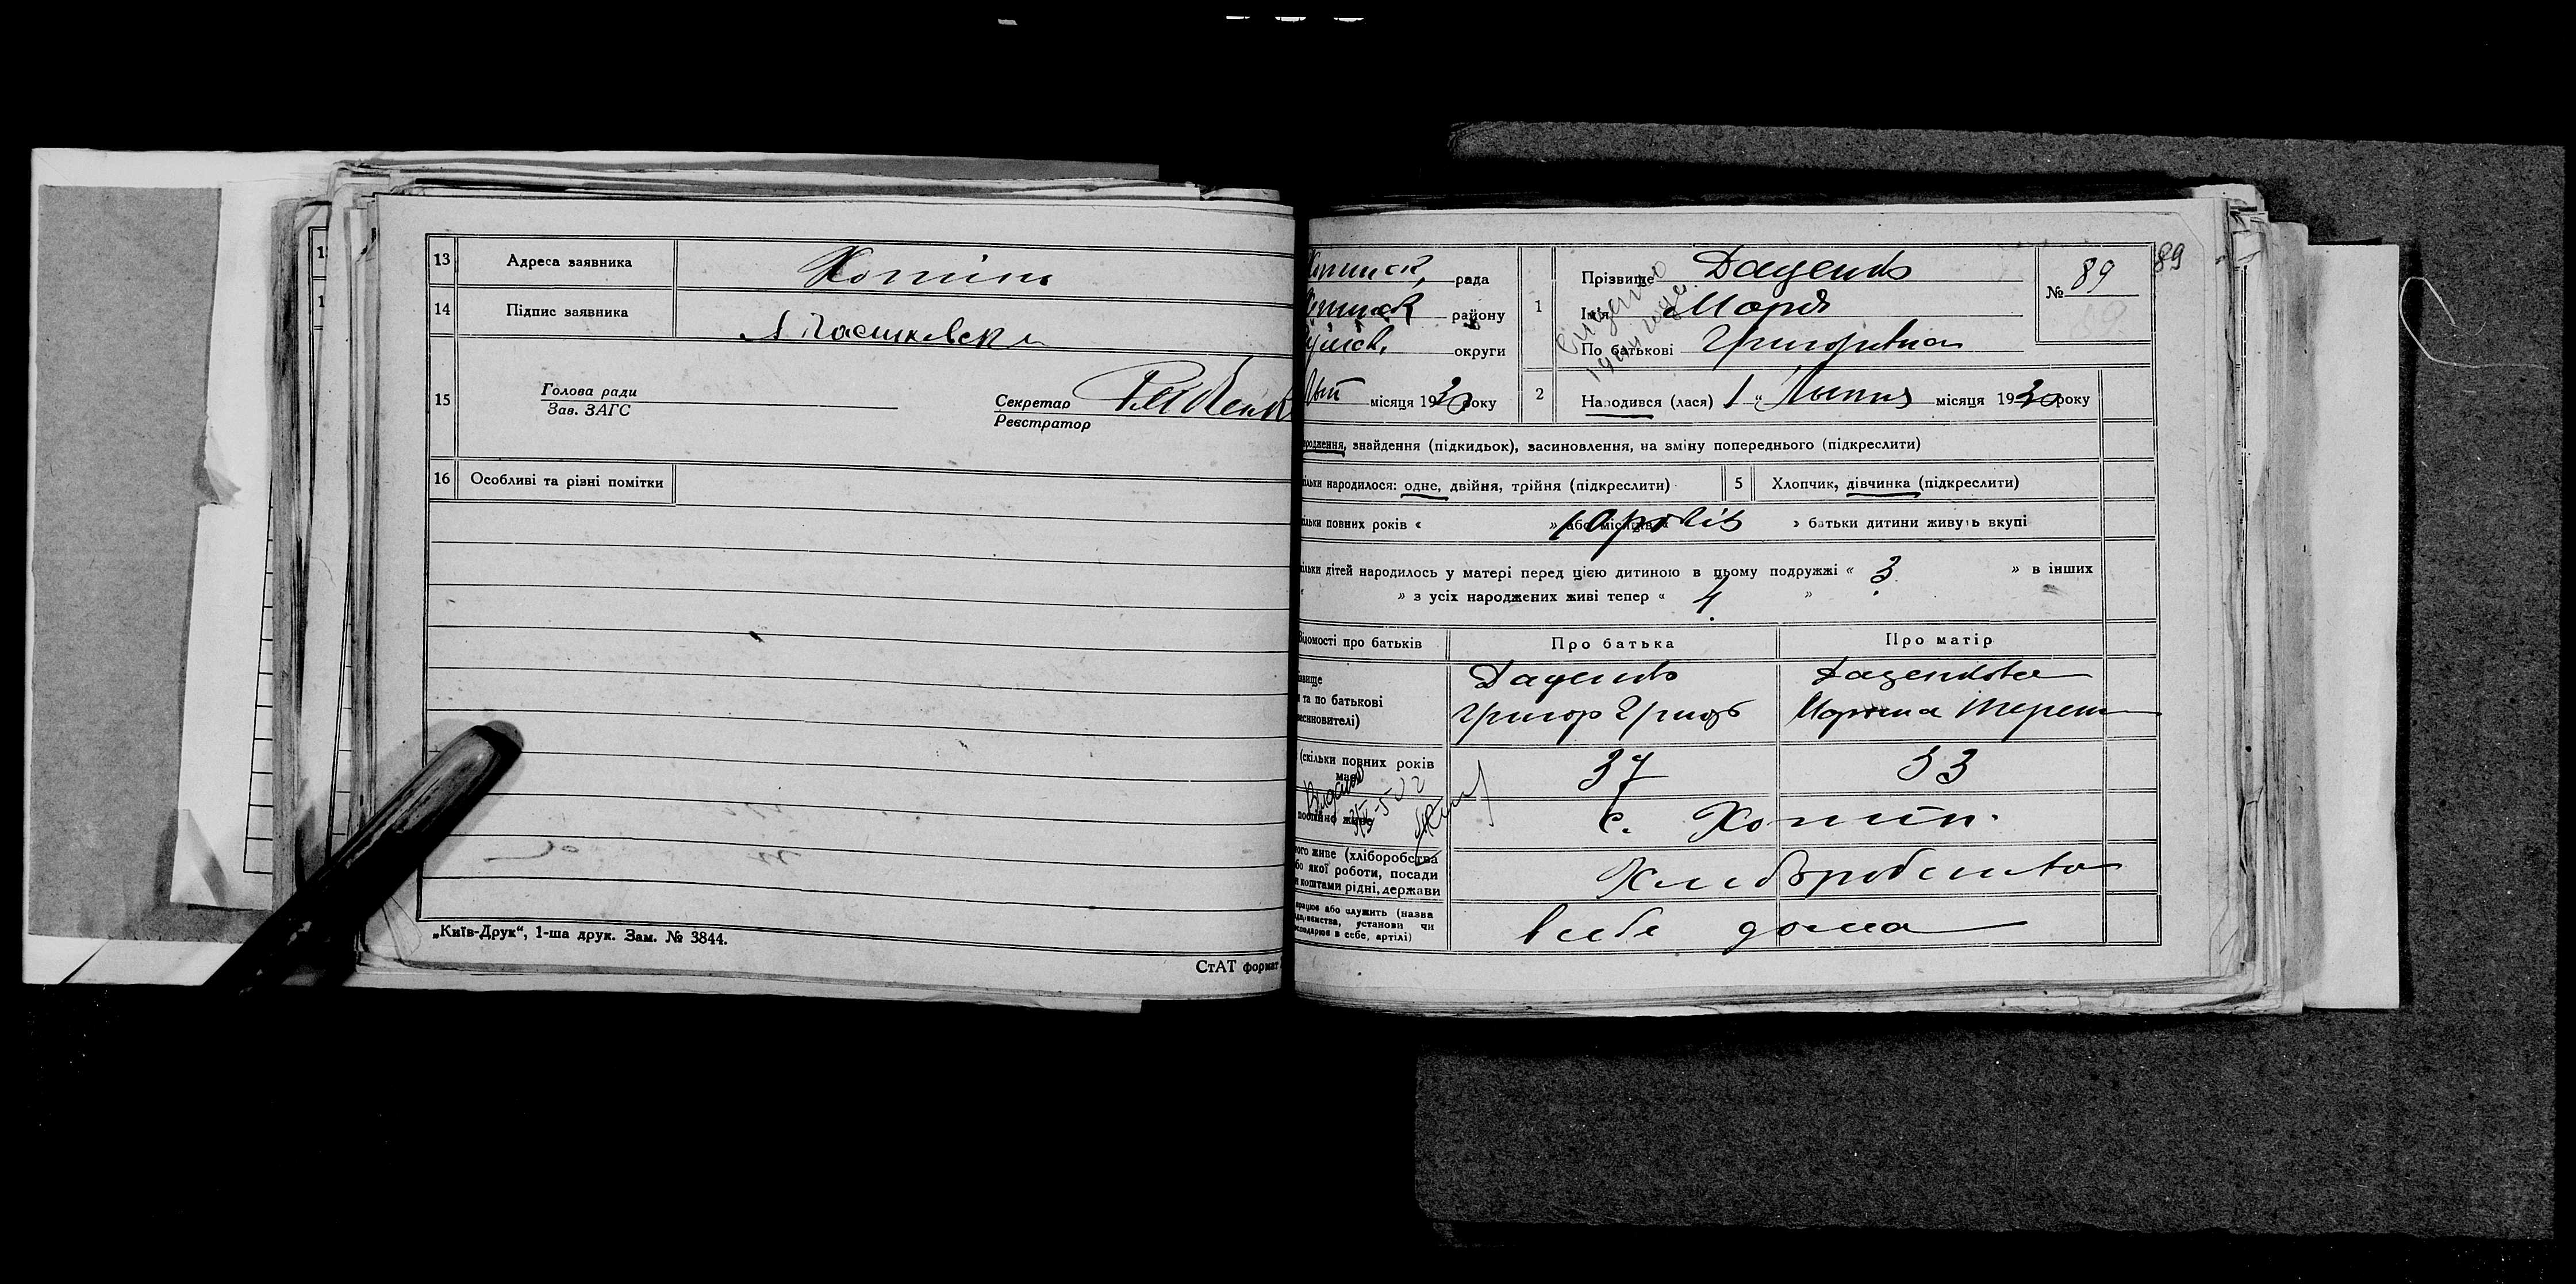 13 Адреса заявника Хотінь
14 Підпис заявника
15 Голова ради
Зав. ЗАГС
Секретар
Реєстратор
16 Особливі та різні помітки
„Київ-Друк“, 1-ша друк. Зам. № 3844.
СтАТ формат
89
рада
району
округи
місяця 1930 року
1 Прізвище Даценко
Ім'я Марія
По батькові Григорівна
№ 89
2 Народився (лася) 1 „ Липня місяця 1930 року
знайдення (підкидьок), васиновлення, на зміну попереднього (підкреслити)
народилося: одне, двійня, трійня (підкреслити)
5 Хлопчик, дівчинка (підкреслити)
повних років « » або місяців 10 років » батьки дитини живуть вкупі
дітей народилось у матері перед цією дитиною в цьому подружжі « 3 » в інших
» з усіх народжених живі тепер « 4 »
Відомості про батьків Про батька Про матір
Даценко Даценкова
та по батькові Григор Григор
(скільки повних років має) 37 33
постійно живе с. Хотін.
живе (хліборобства
якої роботи, посади
коштами рідні, держави Хліборобство
або служить (назва
установи чи
в себе, артілі) в себе дома